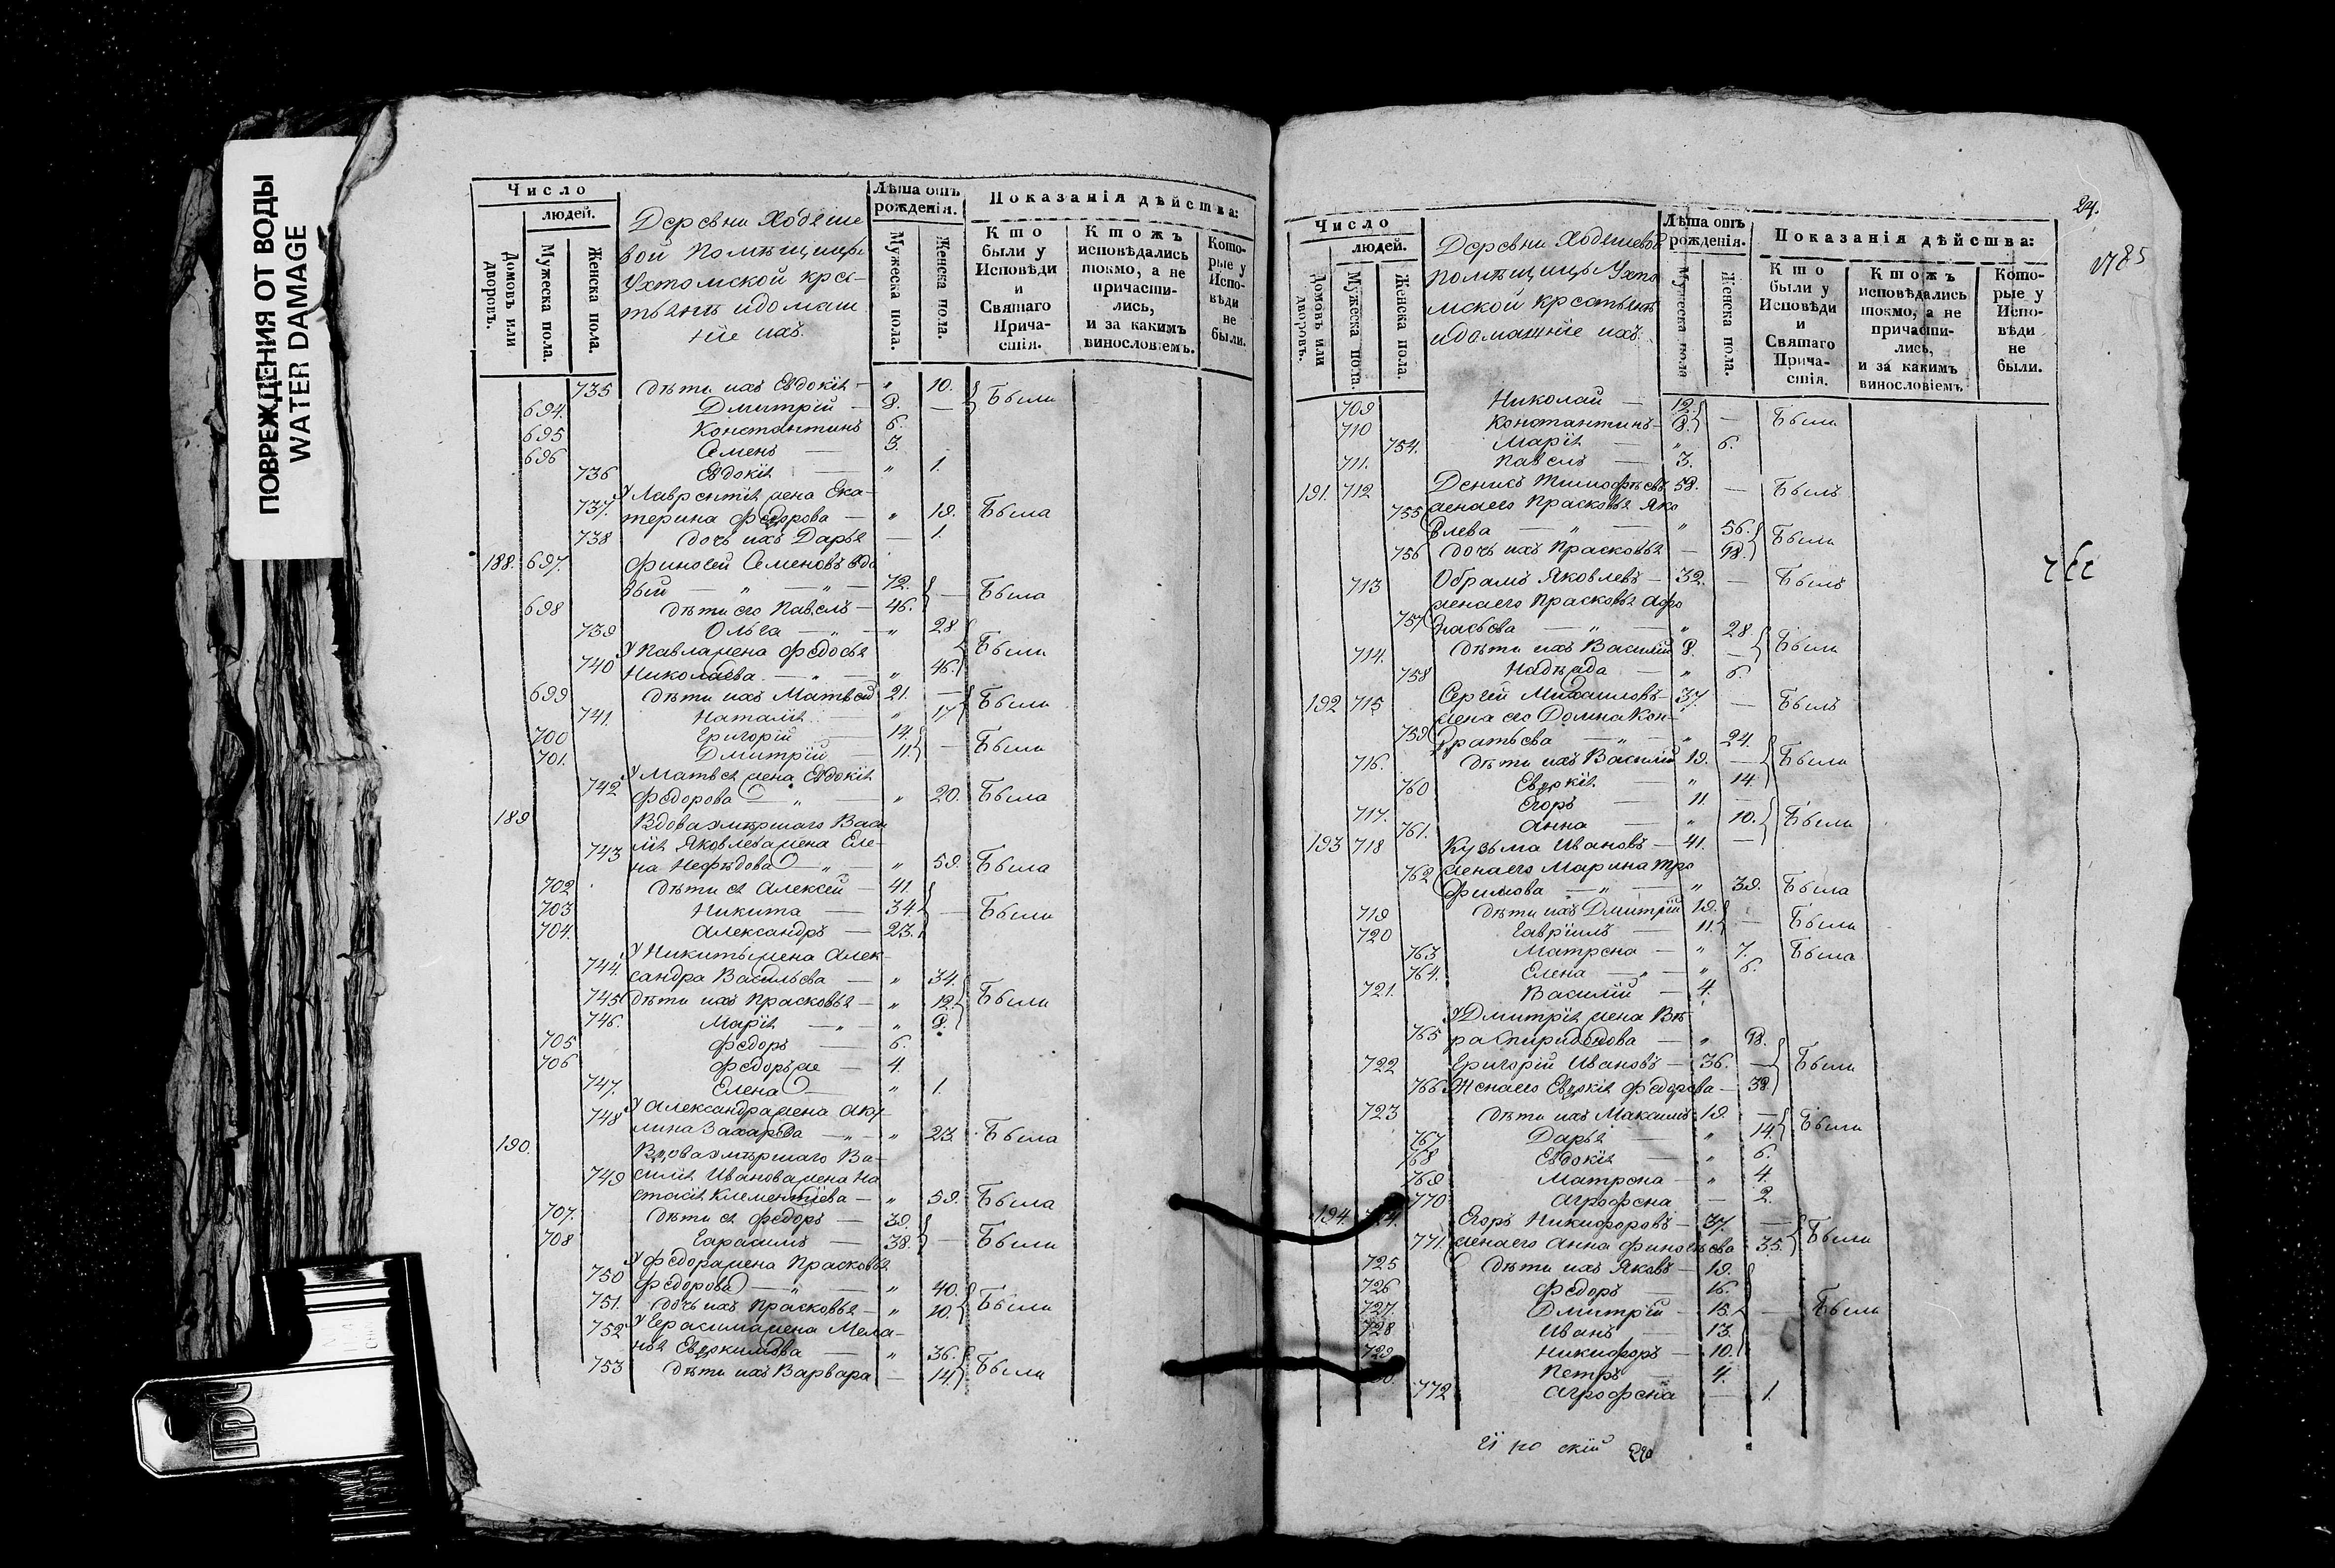 ПОВРЕЖДЕНИЯ ОТ ВОДЫ
WATER DAMAGE
Число
людей.
Домовъ или дворовъ.
Мужеска пола.
Женска пола.
Деревни Ходяше
вой Помѣщицы
Ухтомской крсь-
тьянъ идомаш
ніе ихъ.
Лѣта отъ рожденія.
Мужеска пола.
Женска пола.
Показанія дѣйства:
Кто были у Исповѣди и Святаго Причастія.
Ктожъ исповѣдались токмо, а не причастились, и за какимъ винословіемъ.
Которые у Исповѣди не были.
735 дѣти ихъ Евдокія — „ 10. Были
694. Дмитрій — 8. —
695 Константинъ 6.
696 Семенъ — 3.
736 Евдокія — „ 1.
У Лаврентія жена Ека-
737. терина Федорова — „ 19. Была
738 дочь ихъ Дарья — 1.
188. 697. Финогей Семеновъ вдо
вый — „ — „ — 72. — Были
698 дѣти его Павелъ — 46.
739 Ольга — „ — „ 28
У Павла жена Федосья Были
740 Николаева — „ — „ 46.
699 дѣти ихъ Матвей 21. — Были
741. Наталія — „ 17
700 Григорій — 14. — Были
701. Дмитрій — 11.
У Матвея жена Евдокія
742 Федорова — „ — „ 20. Была
189 Вдова умершаго Васи
743 лія Яковлева жена Еле-
на Нефедова — „ — „ 59. Была
702 дѣти ея Алексей — 41.
703 Никита — 34. — Были
704. Александръ — 23.
У Никиты жена Алек-
744. сандра Васильева — „ 34.
745 дѣти ихъ Прасковья — „ 12. Были
746. Марія — „ „ 8.
705 Федоръ — 6.
706 Федоръ же — 4.
747. Елена — „ 1.
У Александра жена Аку
748 лина Захарова — „ — „ 23. Была
190. Вдова умершаго Ва-
749 силія Иванова жена На
стасія Клементіева — „ 59. Была
707. дѣти ея Федоръ — 39.
708 Гарасимъ — 38. — Были
У Федора жена Прасковья
750 Федорова — „ — „ 40. Были
751. дочь ихъ Прасковья — „ 10.
752 У Герасима жена Мела-
нья Евдокимова — „ 36. Были
753 дѣти ихъ Варвара — 14.
24.
Число
людей.
Домовъ или дворовъ.
Мужеска пола.
Женска пола.
Деревни Ходяшевой
Помѣщицы Ухто
мской крестьянъ
идомашніе ихъ.
Лѣта отъ рожденія.
Мужеска пола
Женска пола.
Показанія дѣйства:
Кто были у Исповѣди и Святаго Причастія.
Ктожъ исповѣдались токмо, а не причастились, и за какимъ винословіемъ
Которые у Исповѣди не были.
709 Николай — 12. — Были
710 Константинъ — 8.
754. Марія — „ 6.
711. Павелъ — 3.
191. 712 Денисъ Тимофѣевъ 58. — Былъ
755 жена его Прасковья Яко
влева — „ — „ 56. Были
756 дочь ихъ Прасковья — 18.
713 Обрамъ Яковлевъ — 32. — Былъ
жена его Прасковья Афо
757 насьева — „ — „ 28. Были
714. дѣти ихъ Василій 8. —
758 Надежда — „ 6
192 715 Сергей Михаиловъ — 37. — Былъ
жена его Домна Кон-
759 дратьева — „ — „ 24.
716. дѣти ихъ Василій 19. — Были
760 Евдокія „ 14.
717. Егоръ — 11. —
761. Анна — „ 10. Были
193 718 Кузьма Ивановъ — 41. —
762 жена его Марина Тро
фимова — „ — „ 39. Была
719 дѣти ихъ Дмитрій 19. — Были
720 Гавріилъ — 11.
763 Матрена — „ 7. Была
764. Елена — „ — „ 6.
721. Василій — 4.
У Дмитрія жена Вѣ
765 ра Спиридонова — „ 18.
722 Григорій Ивановъ — 36. — Были
766 Жена его Евдокія Федорова — 38
723 дѣти ихъ Максимъ 19. — Были
767 Дарья — „ 14.
768 Евдокія — „ 6.
769 Матрена — „ 4.
770 Агрофена — 2.
194. 724. Егоръ Никифоровъ — 37. — Были
771. жена его Анна Финогѣева 35.
725 дѣти ихъ Яковъ — 19.
726 Федоръ — 16.
727. Дмитрій — 15. — Были
728 Иванъ — 13.
729 Никифоръ — 10.
730. Петръ — 4.
772 Агрофена — 1.